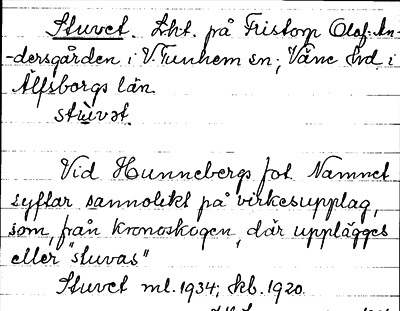 Stuvet. Lht. på Fristorp Olof-An-
-dersgården i V. Tunhem sn; Väne hd i
Älfsborgs län
stùvət.
Vid Hunnebergs fot. Namnet
syftar sannolikt på virkesupplag,
som, från Kronoskogen, där upplägges
eller "stuvas"
Stuvet ml. 1934; Kb. 1920